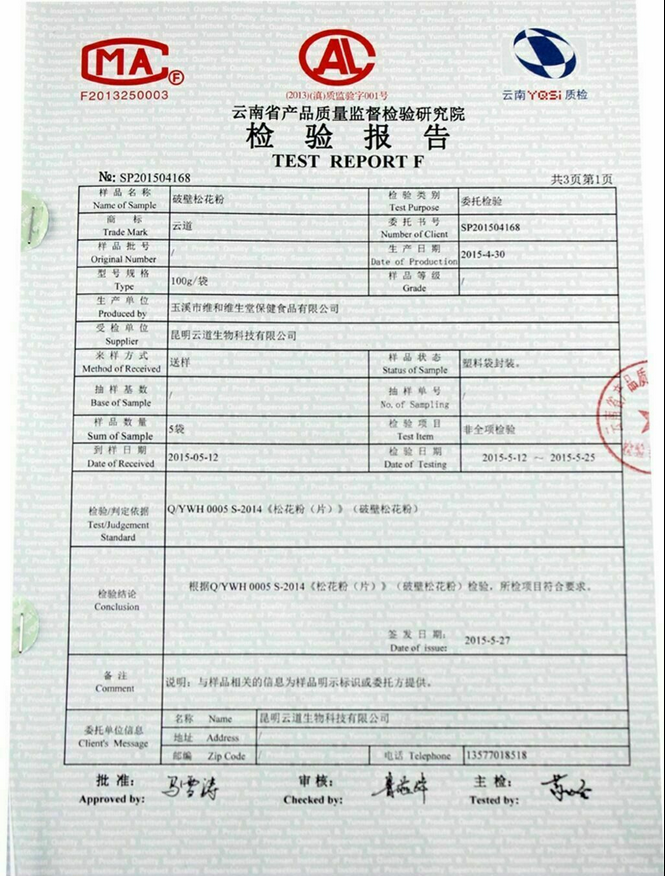 CMA F
CAL
F2013250003
(2013)(滇)质监验字001号
云南YQSI质检
云南省产品质量监督检验研究院
检验报告
TEST REPORT F
№: SP201504168
共3页第1页
样品名称 Name of Sample 破壁松花粉 检验类别 Test Purpose 委托检验
商标 Trade Mark 云道 委托书号 Number of Client SP201504168
样品批号 Original Number / 生产日期 Date of Production 2015-4-30
型号规格 Type 100g/袋 样品等级 Grade /
生产单位 Produced by 玉溪市维和维生堂保健食品有限公司
受检单位 Supplier 昆明云道生物科技有限公司
来样方式 Method of Received 送样 样品状态 Status of Sample 塑料袋封装。
抽样基数 Base of Sample / 抽样单号 No. of Sampling /
样品数量 Sum of Sample 5袋 检验项目 Test Item 非全项检验
到样日期 Date of Received 2015-05-12 检验日期 Date of Testing 2015-5-12 ～ 2015-5-25
检验/判定依据 Test/Judgement Standard Q/YWH 0005 S-2014《松花粉（片）》（破壁松花粉）
检验结论 Conclusion 根据Q/YWH 0005 S-2014《松花粉（片）》（破壁松花粉）检验，所检项目符合要求。
签发日期: Date of issue: 2015-5-27
备注 Comment 说明：与样品相关的信息为样品明示标识或委托方提供。
委托单位信息 Client's Message
名称 Name 昆明云道生物科技有限公司
地址 Address /
邮编 Zip Code / 电话 Telephone 13577018518
批准: Approved by: 马雪涛 审核: Checked by: 主检: Tested by:
云南省产品质
检验